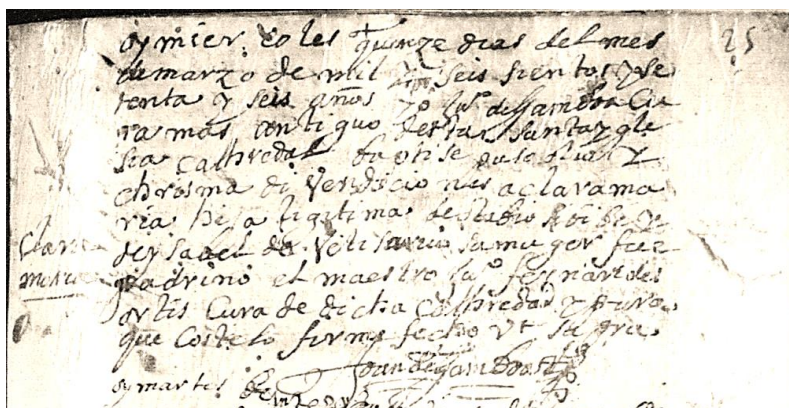 25
oy miercoles quinze dias del mes
de marzo de mil seis sientos y se
tenta y seis años yo Juº de Gamboa Cu
ra mas antiguo desta santa ygle
sia Cathredal baptise puse olio y
chrisma di vendiciones a clara ma
ria hija ligitima de y
de ysabel de su muger fue
padrino el maestro Juº fernandes
ortis Cura de dicha Cathredal y para
que Coste lo firme fecho vt supra
Juan de Gamboa
Clara
Maria
oy martes